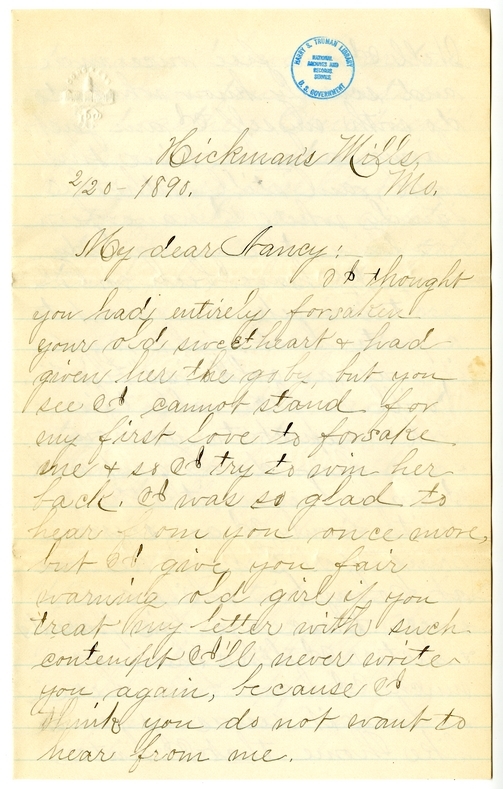 HARRY S. TRUMAN LIBRARY
NATIONAL
ARCHIVES AND
RECORDS
SERVICE
U.S. GOVERNMENT
Hickman's Mills,
2/20-1890. Mo.
My dear Nancy:
I thought
you had entirely forsaken
your old sweetheart & had
given her the goby, but you
see I cannot stand for
my first love to forsake
me & so I try to win her
back. I was so glad to
hear from you once more,
but I give you fair
warning old girl if you
treat my letter with such
contempt I'll never write
you again, because I
think you do not want to
hear from me.